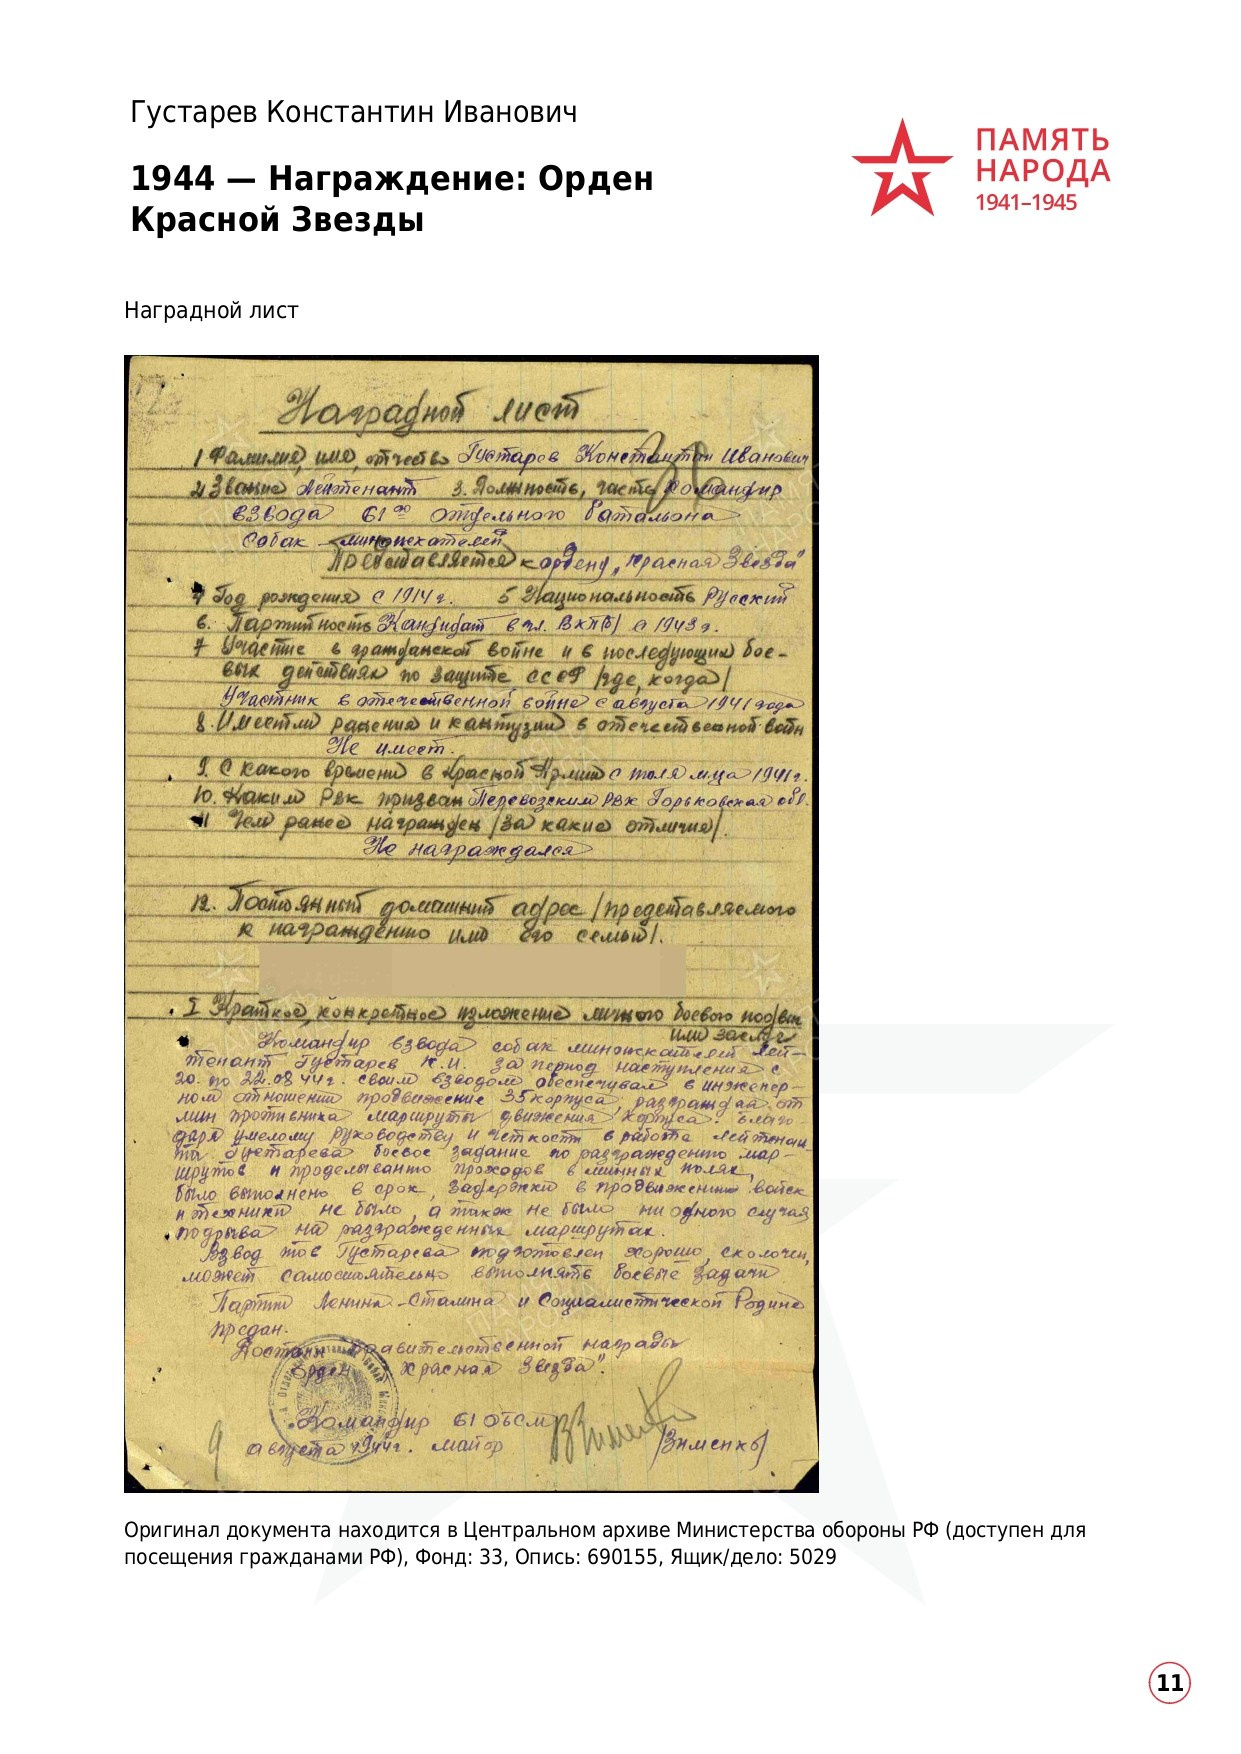 Густарев Константин Иванович
ПАМЯТЬ
НАРОДА
1941–1945
1944 — Награждение: Орден
Красной Звезды
Наградной лист
Наградной лист
1 Фамилия, имя, отчество Густарев Константин Иванович
2 Звание Лейтенант 3. Должность, часть Командир
взвода 61го отдельного батальона
собак - миноискателей
Представляется к ордену „Красная Звезда"
4 Год рождения с 1914 г. 5 Национальность Русский
6. Партийность Кандидат в чл. ВКП(б) с 1943 г.
7 Участие в гражданской войне и в последующих бое-
вых действиях по защите СССР /где, когда/
Участник в отечественной войне с августа 1941 года
8. Имеет ли ранения и контузии в отечественной войн
Не имеет.
9. С какого времени в Красной Армии с июля м-ца 1941 г.
10. Каким РВК призван Перевозским РВК Горьковская обл.
11 Чем ранее награжден /за какие отличия/.
Не награждался
12. Постоянный домашний адрес /представляемого
к награждению или его семьи/.
I Краткое, конкретное изложение личного боевого подвига
или заслуг
Командир взвода собак миноискателей лей-
тенант Густарев К.И. за период наступления с
20. по 22.08 44 г. своим взводом обеспечивал в инженер-
ном отношении продвижение 35 корпуса разграждая от
мин противника маршруты движения корпуса. Благо-
даря умелому руководству и четкости в работе лейтенан-
та Густарева боевое задание по разграждению мар-
шрутов и проделыванию проходов в минных полях,
было выполнено в срок, задержки в продвижении войск
и техники не было, а также не было ни одного случая
подрыва на разгражденных маршрутах.
Взвод тов Густарева подготовлен хорошо, сколочен,
может самостоятельно выполнять боевые задачи
Партии Ленина - Сталина и Социалистической Родине
предан.
Достоин правительственной награды
Орден „Красная Звезда".
Командир 61 ОБСМ
августа 1944 г. майор /Зименко/
Оригинал документа находится в Центральном архиве Министерства обороны РФ (доступен для
посещения гражданами РФ), Фонд: 33, Опись: 690155, Ящик/дело: 5029
11